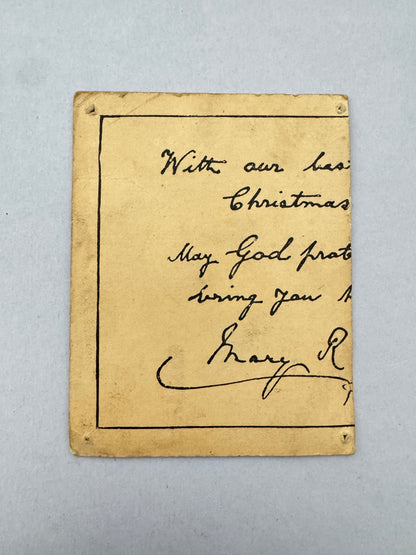 With our bes
Christmas
May God prot
bring you h
Mary R